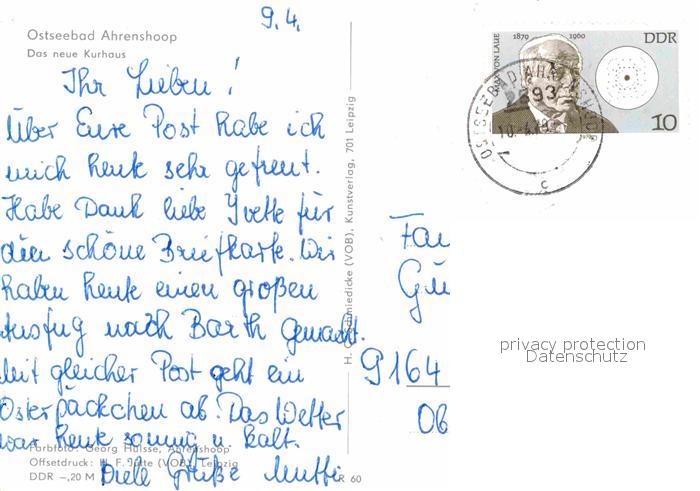 9.4.
Ostseebad Ahrenshoop
Das neue Kurhaus
Ihr Lieben!
Über Eure Post habe ich
mich heute sehr gefreut.
Habe Dank liebe Yvette für
die schöne Briefkarte. Wir
haben heute einen großen
Ausflug nach Barth gemacht.
Mit gleicher Post geht ein
Osterpäckchen ab. Das Wetter
war heute sonnig u. kalt.
Viele Grüße Mutti
Farbfoto: Georg Hülsse, Ahrenshoop
Offsetdruck: H. F. Jütte (VOB), Leipzig
DDR –,20 M
R 60
H. C. Schmiedicke (VOB), Kunstverlag, 701 Leipzig
MAX VON LAUE
1879 1960
DDR
10
OSTSEEBAD AHRENSHOOP
2593
10.
c
Fa
Gü
9164
Ob
privacy protection
Datenschutz